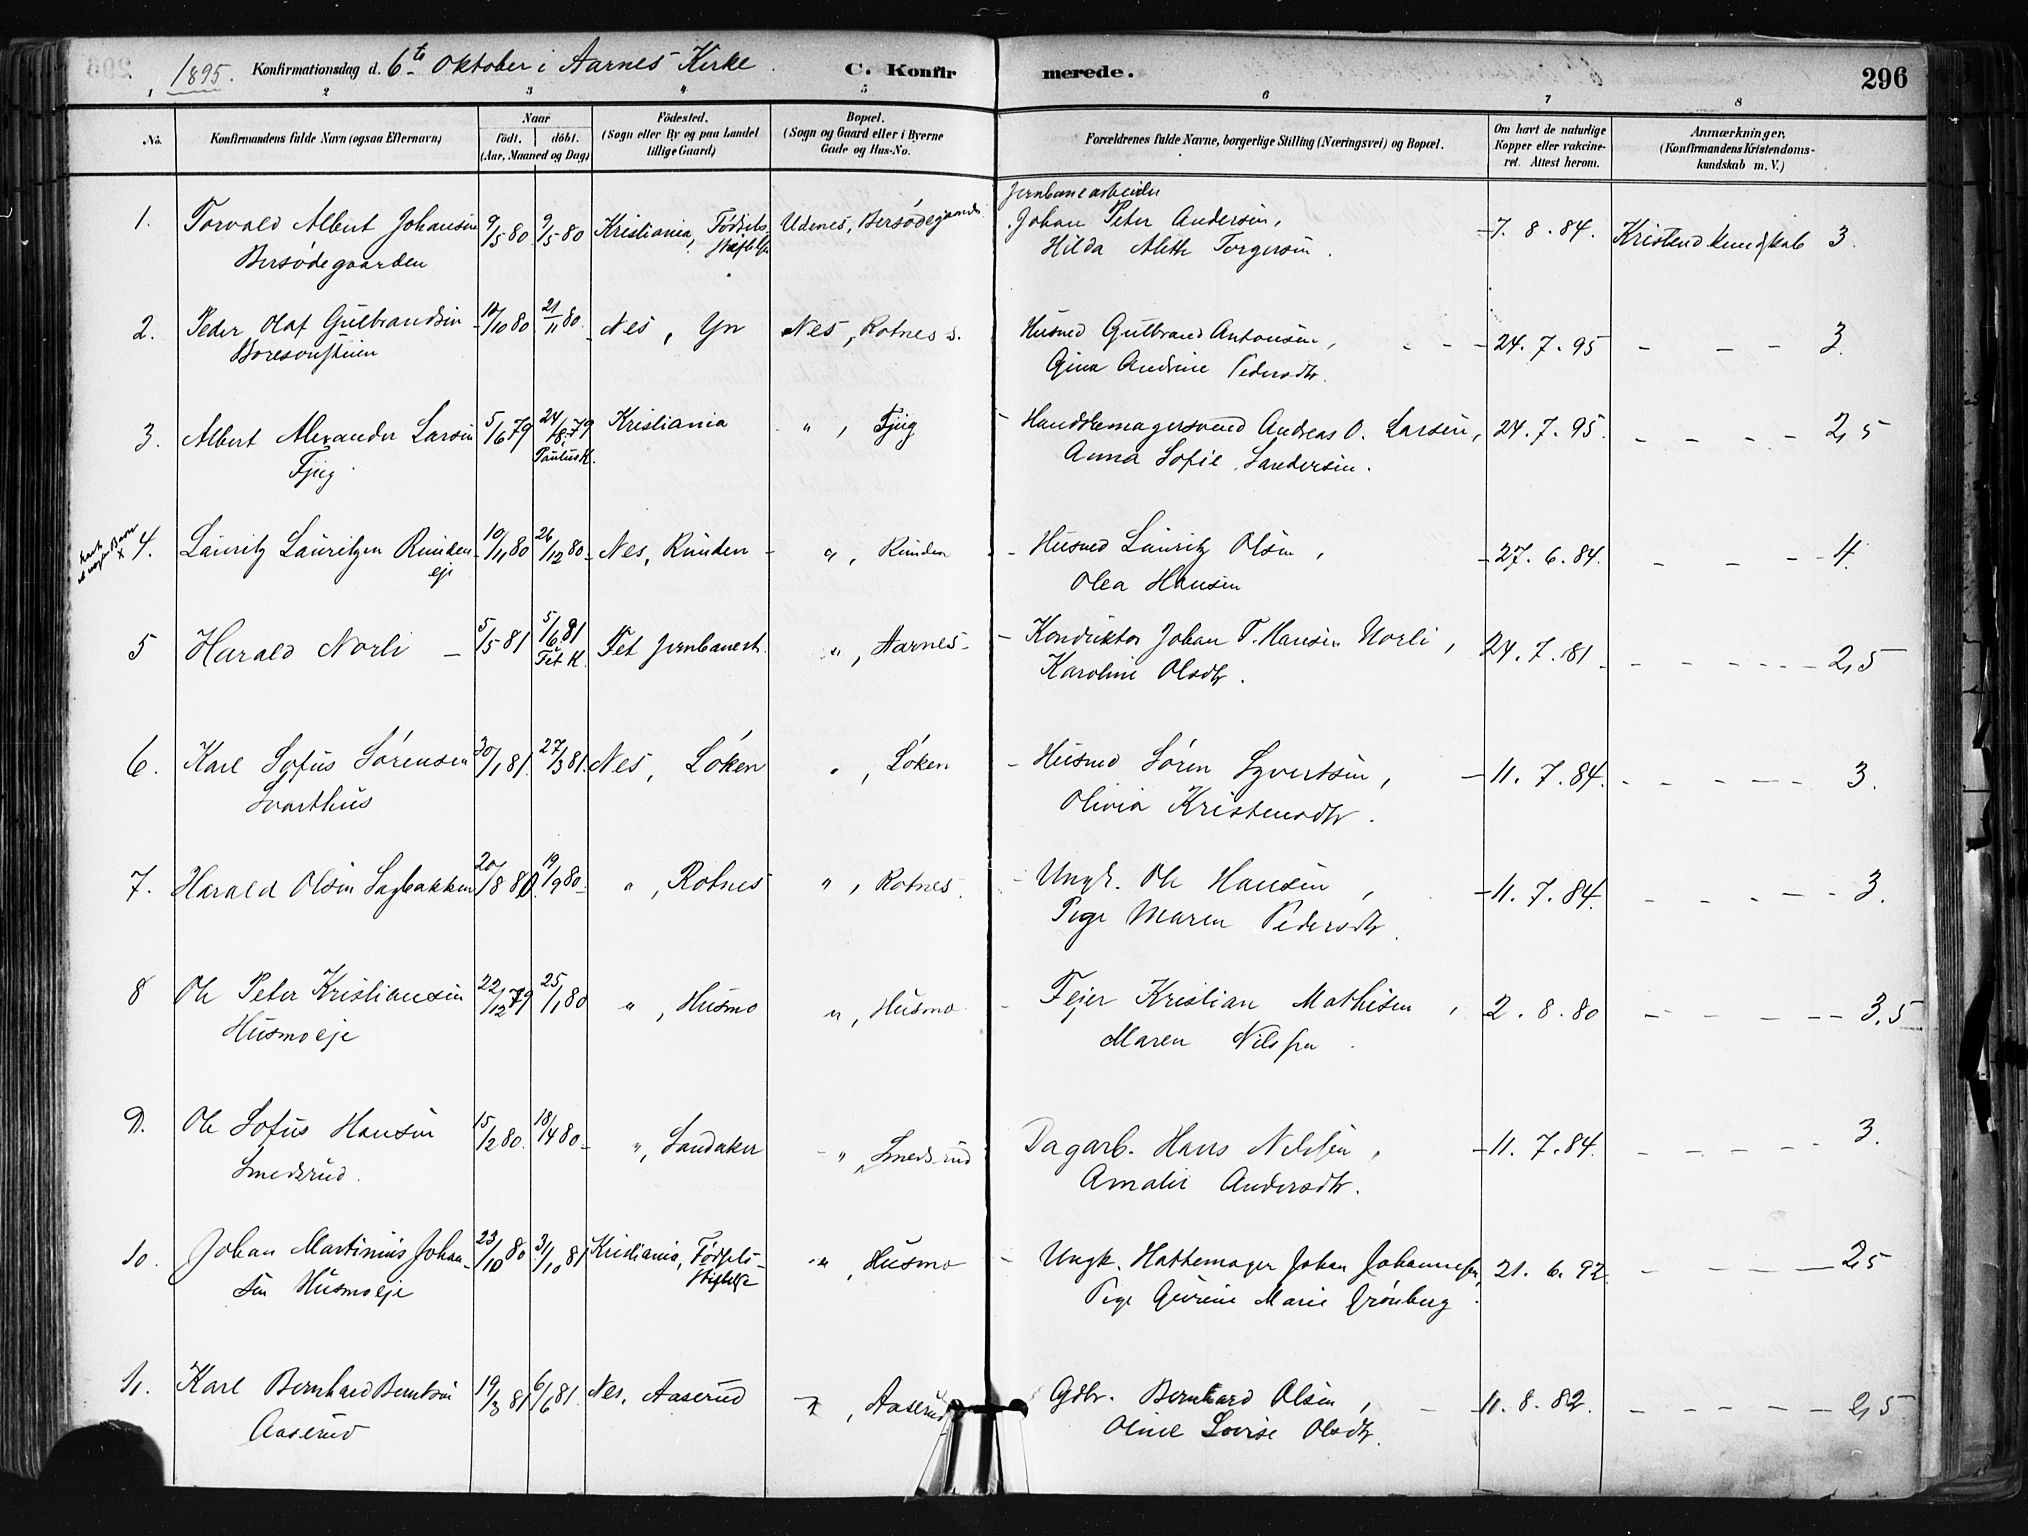 1895. Konfirmationsdag d. 6te Oktober i Aarnes Kirke. C. Konfirmerede. 296
1 2 3 4 5 6 7 8
No. Konfirmandens fulde Navn (ogsaa Efternavn) Naar født. døbt. (Aar, Maaned og Dag) Fødested. (Sogn eller By og paa Landet tillige Gaard) Bopæl. (Sogn og Gaard eller i Byerne Gade og Hus-No. Forældrenes fulde Navne, borgerlige Stilling (Næringsvei) og Bopæl. Om havt de naturlige Kopper eller vakcineret. Attest herom. Anmærkninger. (Konfirmandens Kristendomskundskab m. V.)
Jernbanearbeider
1. Torvald Albert Johansen 9/5 80 9/5 80 Kristiania, Fødsels Udenes, Bersødegaarden Johan Peter Andersen, 7. 8. 84. Kristend. kundskab 3.
Bersødegaarden Stiftelse Hilda Aleth Torgersen.
2. Peder Olaf Gulbrandsen 12/10 80 21/11 80. Nes, Yn Nes, Rotnes Husmd Gulbrand Antonsen, 24. 7. 95 - - - 3.
Gina Andrine Pedersdtr.
3. Albert Alexander Larsen 5/6 79 24/8 79 Kristiania " , Fjug Handskemagersvend Andreas O. Larsen, 24. 7. 95. - - - - 2,5
Fjug Paulus K. Anna Sofie Sandersen.
x 4. Lauritz Lauritzen Runden 10/11 80 26/12 80 Nes, Runden " , Runden Husmd Lauritz Olsen, 27. 6. 84. - - - - 4.
eje Olea Hansen
5 Harald Norli 5/5 81 5/6 81 Fet Jernbanest. " , Aarnes Konduktør Johan T. Hansen Norli, 24. 7. 81 - - - - 2,5
Fet K. Karoline Olsdtr.
6. Karl Sofus Sørensen 30/1 81. 27/3 81. Nes, Løken " , Løken Husmd Søren Syvertsen, 11. 7. 84. - - - - 3.
Svarthus Olivia Kristensdtr.
7. Harald Olsen Sagbakken 20/8 80. 19/9 80 " , Rotnes " , Rotnes. Ungk. Ole Hansen, 11. 7. 84. - - - - 3.
Pige Maren Pedersdtr.
8 Ole Peter Kristiansen 22/12 79 25/1 80 " , Husmo " , Husmo Fejer Kristian Mathisen, 2. 8. 80 - - - - 3,5
Husmoeje Maren Nilssen.
9. Ole Sofus Hansen 15/2 80. 18/4 80 " , Sandaker " , Smedsrud Dagarb. Hans Nilssen, 11. 7. 84. - - - - 3.
Smedsrud. Amalie Andersdtr.
10. Johan Martinius Johan- 23/10 80 31/10 81 Kristiania, Fødsels- " , Husmo Ungk. Hattemager Johan Johannessen, 21. 6. 92. - - - - 2,5
sen Husmoeje Stiftelse Pige Gurine Marie Grønberg.
11. Karl Bernhard Berntsen 19/3 81 6/6 81. Nes, Aaserud " , Aaserud Gdbr. Bernhard Olsen, 11. 8. 82. - - - - 2,5
Aaserud Oline Lovise Olsdtr.